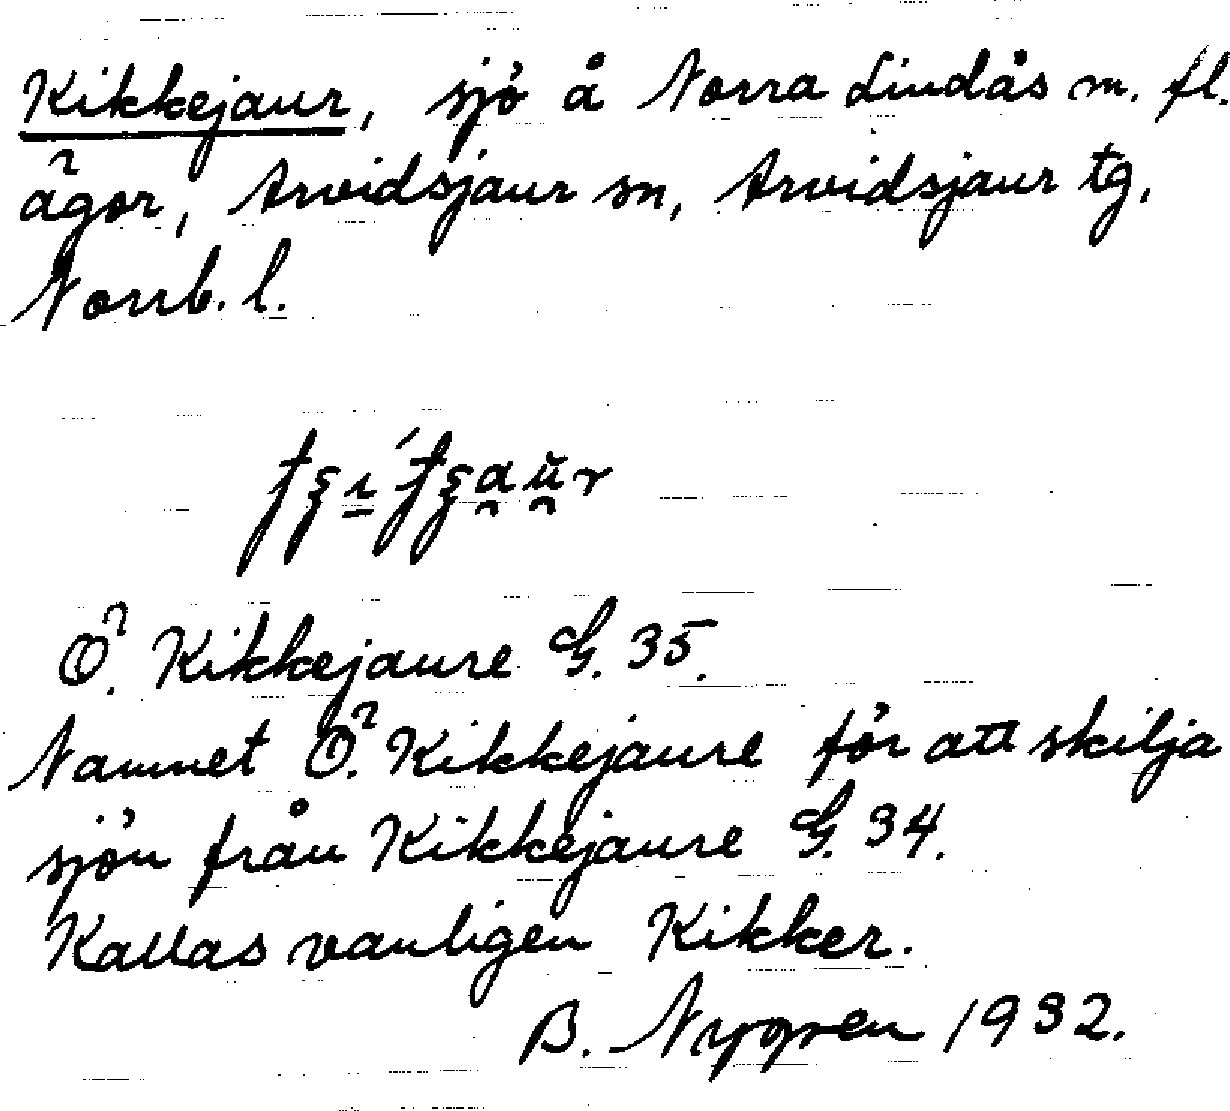 Kikkejaur, sjö å Norra Lindås m. fl.
ägor, Arvidsjaur sn, Arvidsjaur tg,
Norrb. l.
Ö. Kikkejaure G. 35.
Namnet Ö. Kikkejaure för att skilja
sjön från Kikkejaure G. 34.
Kallas vanligen Kikker.
B. Nygren 1932.